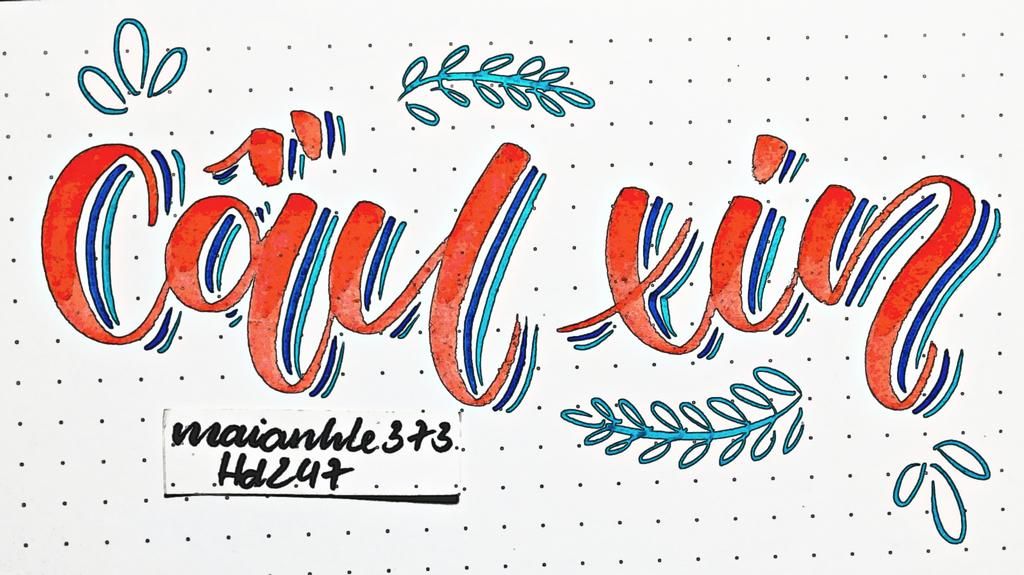 Cầu xin
maianhle373
Hd247